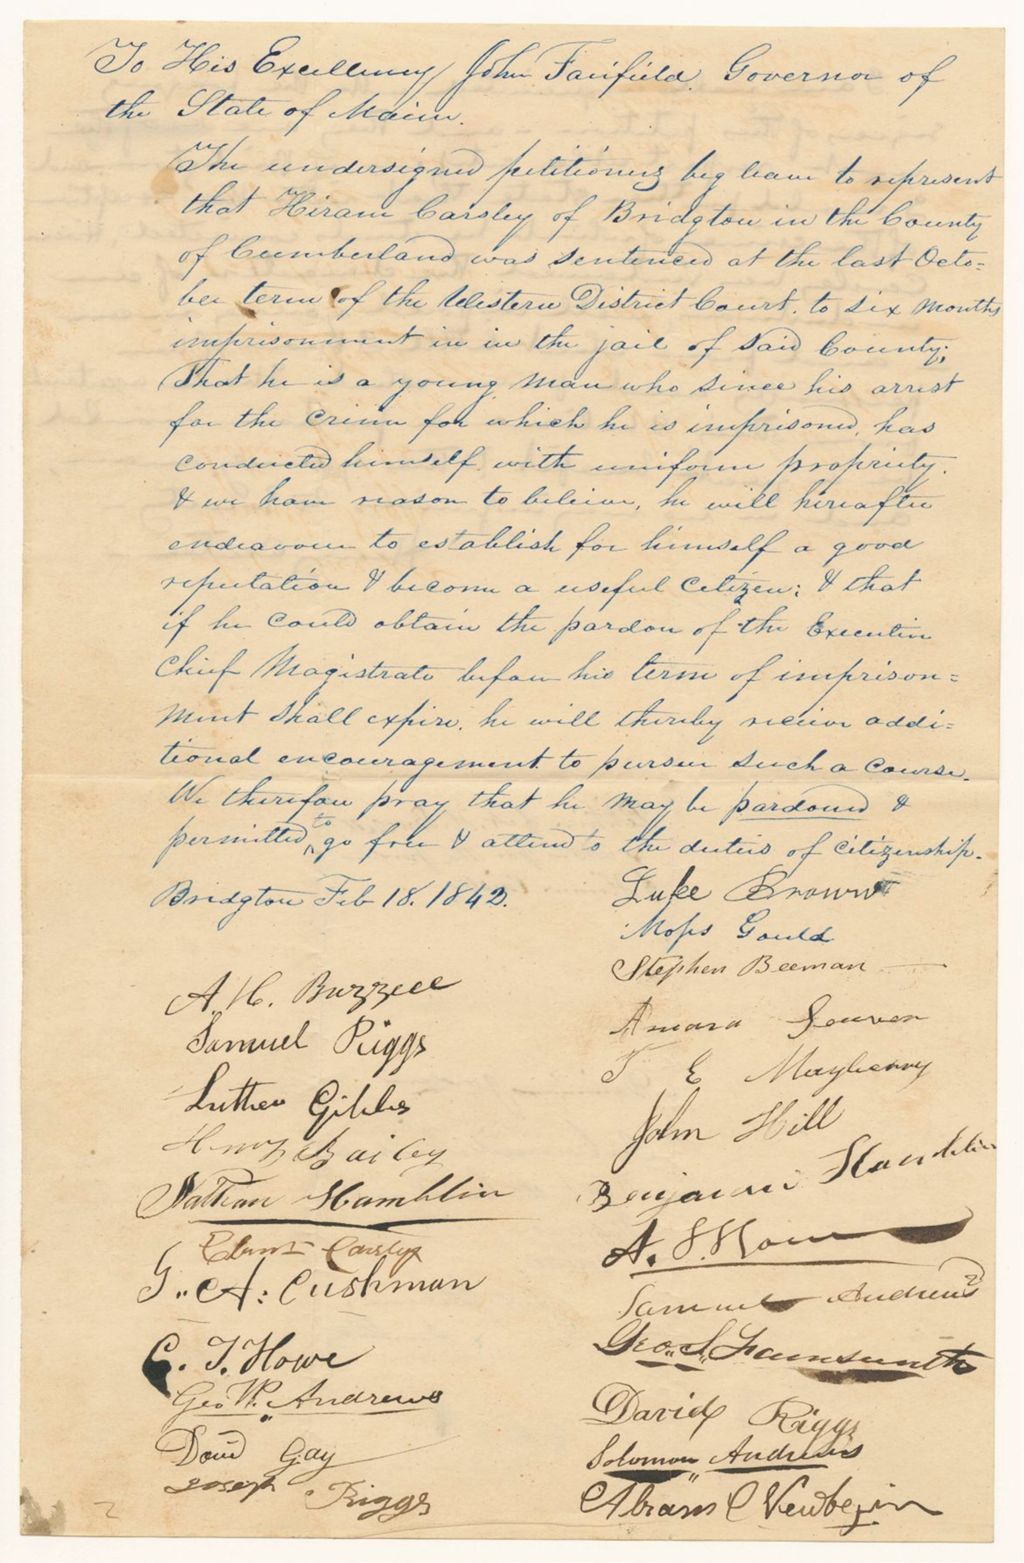 To His Excellency John Fairfield Governor of
the State of Maine.
The undersigned petitioners beg leave to represent
that Hiram Carsley of Bridgton in the County
of Cumberland was sentenced at the last Octo=
ber term of the Western District Court. to six months
imprisonment in in the jail of said County;
That he is a young man who since his arrest
for the crime for which he is imprisoned, has
conducted himself with uniform propriety.
& we have reason to beleive, he will hereafter
endeavour to establish for himself a good
reputation & become a useful citizen; & that
if he could obtain the pardon of the Executive
Chief Magistrate before his term of imprison=
ment shall expire, he will thereby receive addi=
tional encouragement to pursue such a course.
We therefore pray that he may be pardoned &
permitted to go free & attend to the duties of citizenship.
Bridgton Feb 18. 1842.
Luke Brown
Moses Gould
Stephen Beeman
A. H. Buzzell
Samuel Riggs
Luther Gibbs
Henry Bailey
Nathan Hamblin
Carsley
G. A. Cushman
C. T. Howe
Geo W. Andrews
David Gay
Joseph Riggs
Amara
T E Mayberry
John Hill
Benjamin Hamblin
A. S. Howe
Samuel Andrews
Geo. S. Farnsworth
David Riggs
Solomon Andrews
Abram C Newbegin
2